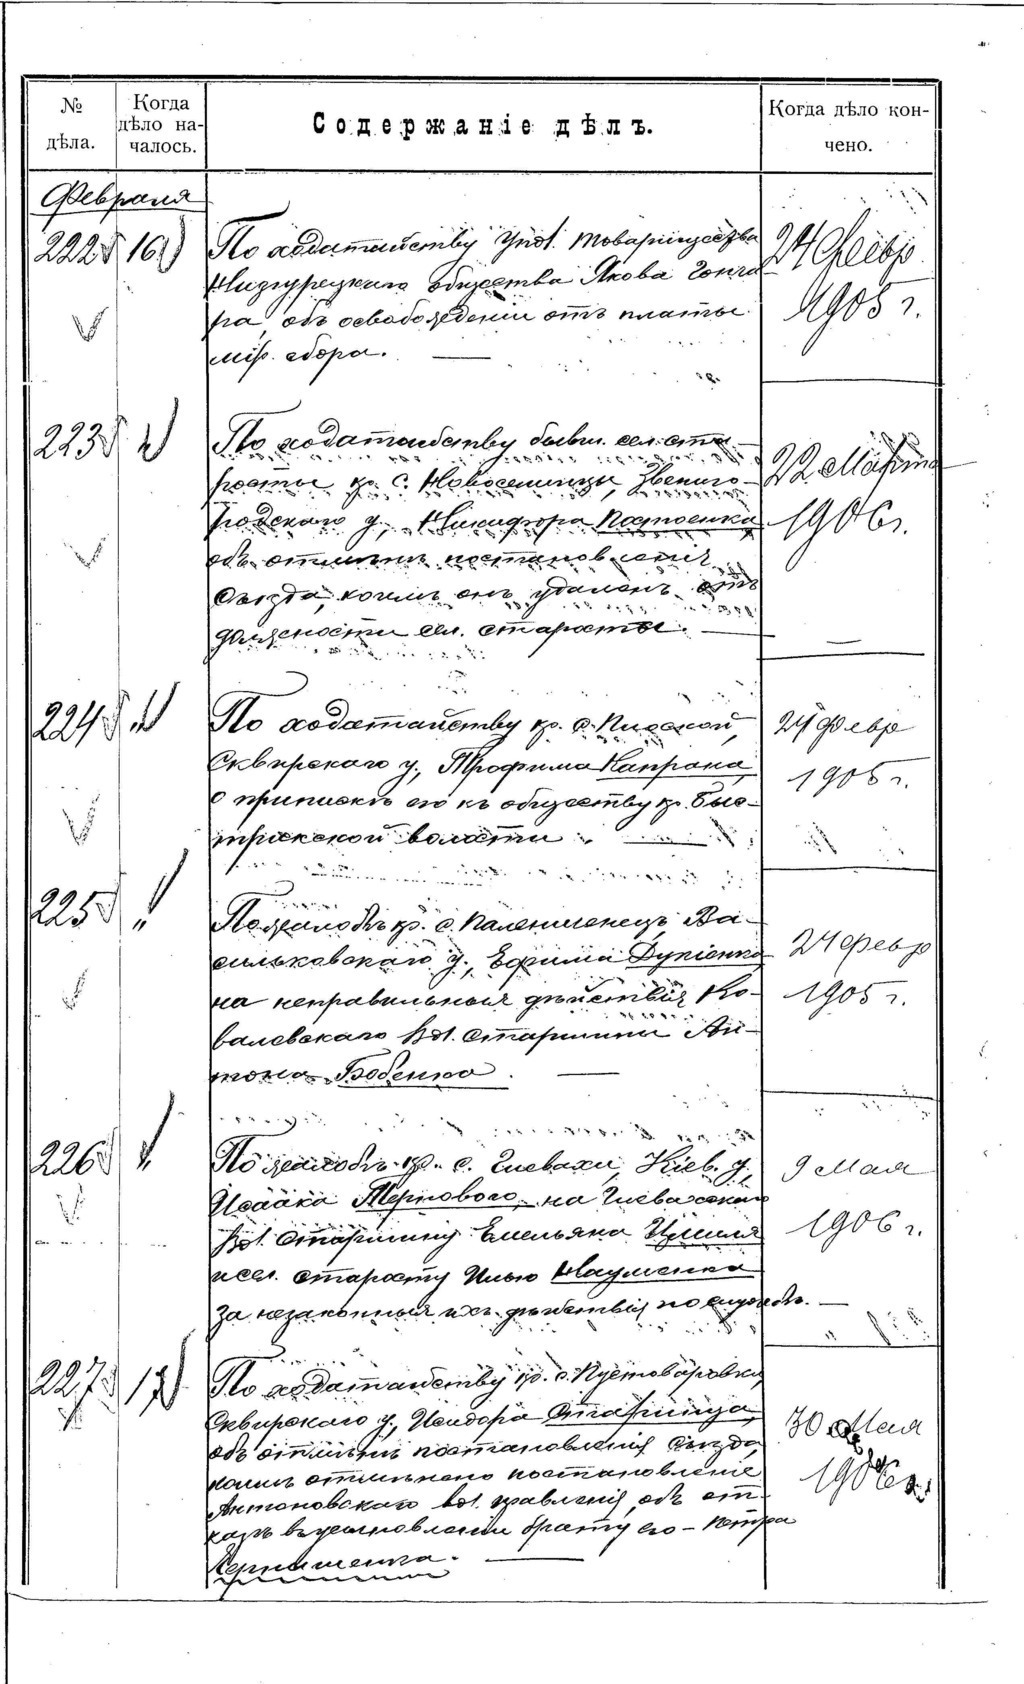 № дѣла.
Когда дѣло началось.
Содержаніе дѣлъ.
Когда дѣло кончено.
Февраля
222 16
По ходатайству Упол. товарищества
общества Якова Гонча-
ра, объ освобожденіи отъ платы
мір. сбора.
24 Февр
1905 г.
223 "
По ходатайству бывш. сел. ста-
росты кр. с. Новоселицы, Звениго-
родскаго у., Никифора Постоенка
объ отмѣнѣ постановленія
Съѣзда, коимъ онъ удаленъ отъ
должности сел. старосты.
22 Марта
1906 г.
224 "
По ходатайству кр. с.
Сквирскаго у., Трофима Капрана,
о припискѣ его къ обществу кр. Быс-
трикской волости
24 Февр
1905 г.
225 "
По жалобѣ кр. с. Паленишенецъ, Ва-
сильковскаго у., Ефима
на неправильныя дѣйствія Ко-
валевскаго Вол. Старшины Ан-
тона Бобенко.
24 Февр
1905 г.
226 "
По жалобѣ кр. с. Глевахи, Кіев. у.,
Исаака Терноваго, на Глевахскаго
Вол. Старшину Емельяна
и сел. старосту Илью Науменка
за незаконныя ихъ дѣйствія по службѣ.
9 Мая
1906 г.
227 17
По ходатайству кр. с. Пустоваровки,
Сквирскаго у., Исидора
объ отмѣнѣ постановленія Съѣзда,
коимъ отмѣнено постановленіе
Антоновскаго вол. правленія, объ от-
казѣ въ брату его – Петра
30 Мая